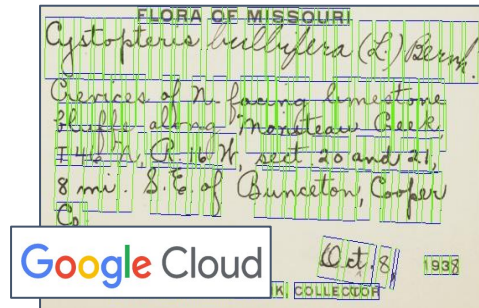 FLORA OF MISSOURI
Cystopteris bulbifera (L.) Bernh.
Crevices of N. facing limestone
bluffs along Moniteau Creek,
T 46 N, R. 16 W, sect. 20 and 21,
8 mi. S.E. of Bunceton, Cooper
Co.
Oct. 8, 1938
Google Cloud
K, COLLECTOR